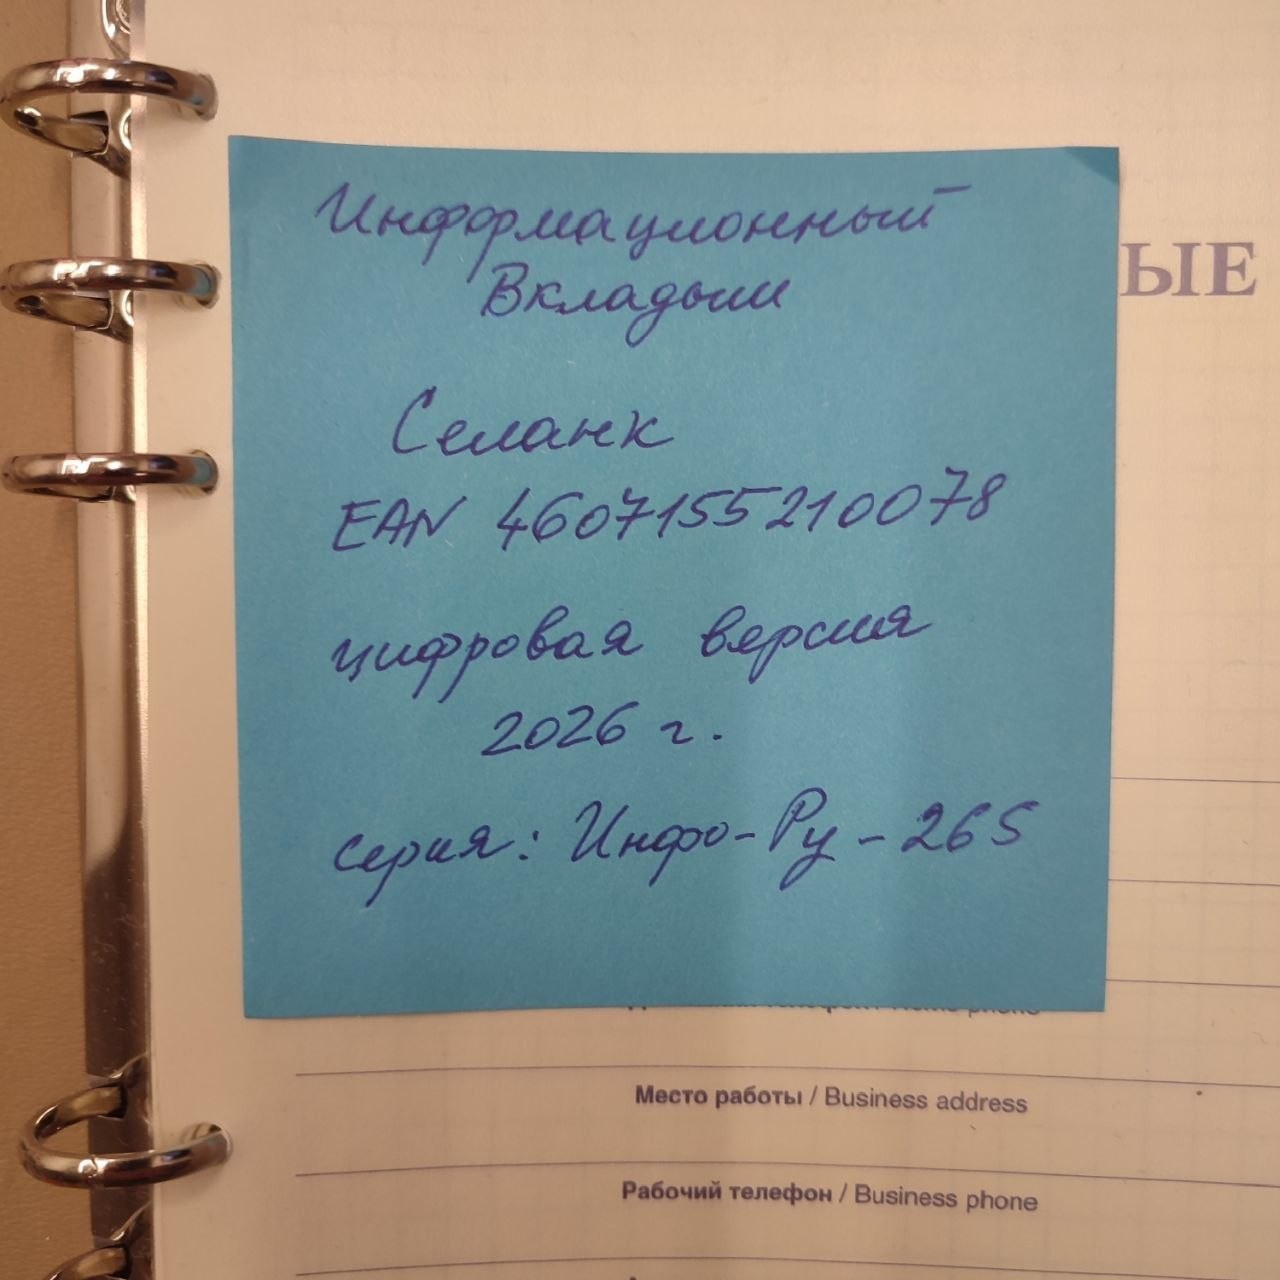 Информационный
Вкладыш
ЫЕ
Селанк
EAN 4607155210078
цифровая версия
2026 г.
серия: Инфо-Ру-265
Место работы / Business address
Рабочий телефон / Business phone